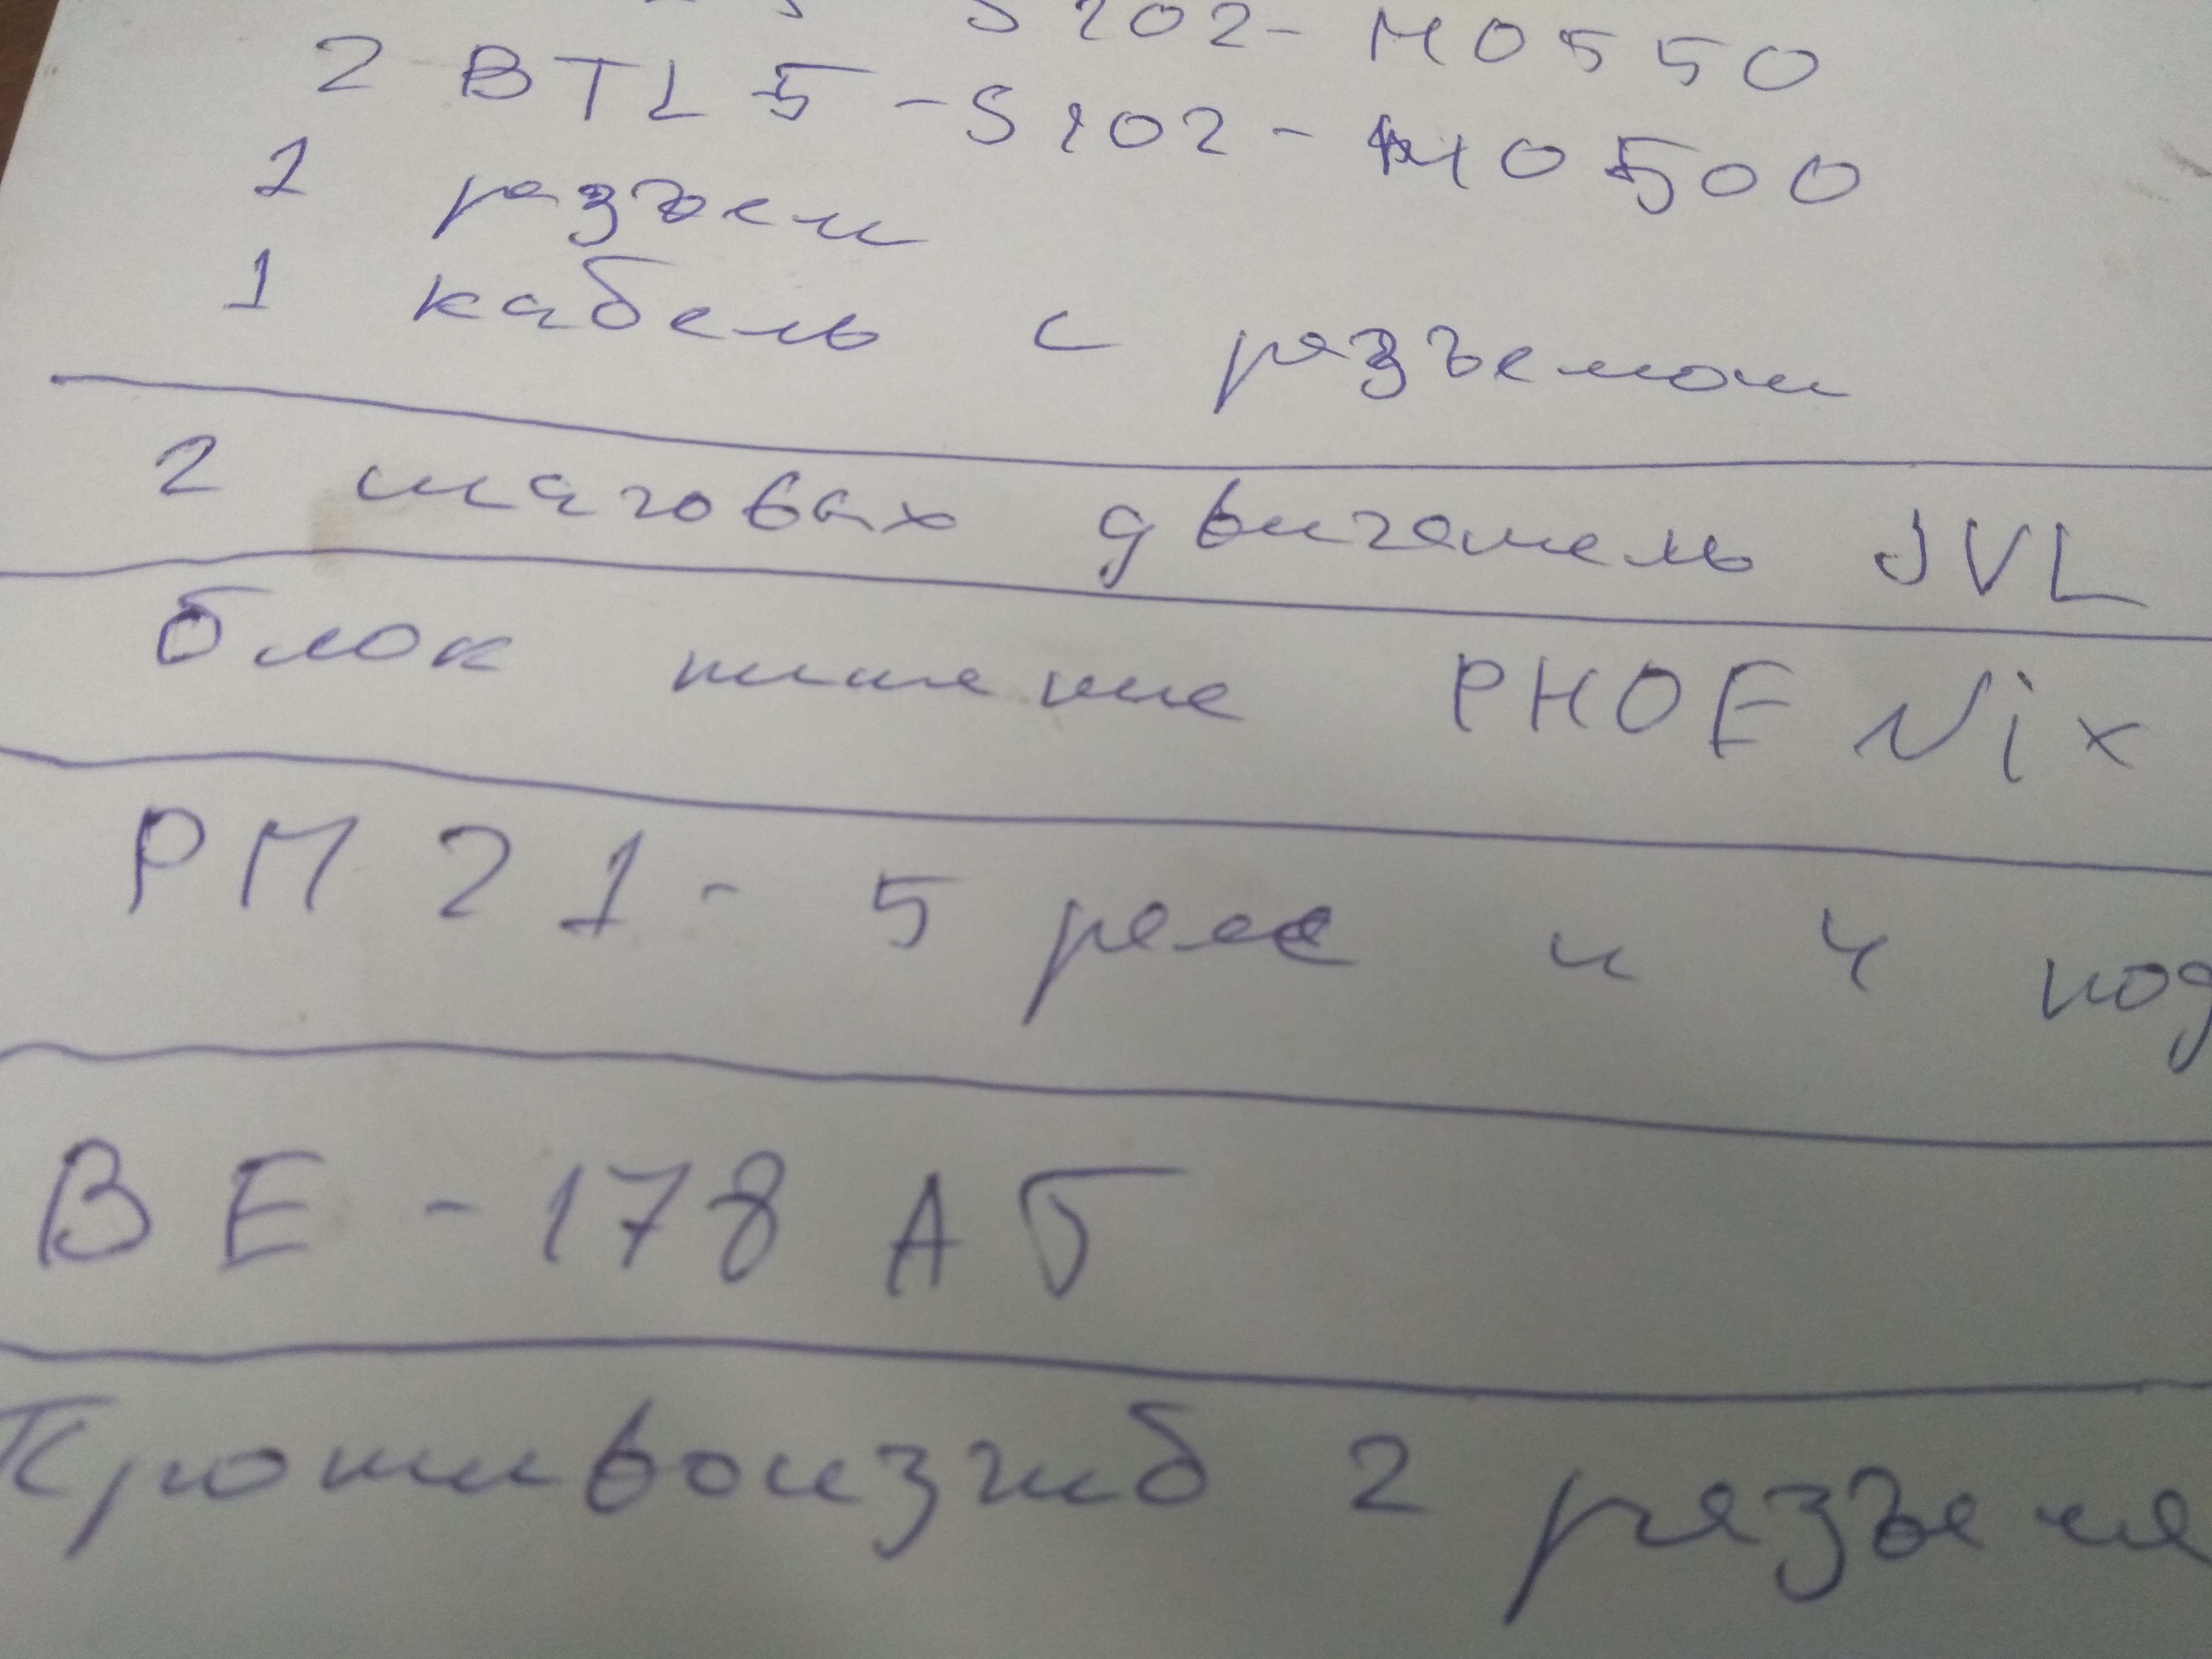 S102-M0550
2 BTL5-S102-M0500
1 разъем
1 кабель с разъемом
2 шаговах двигатель JVL
блок питение PHOENix
РМ21- 5 реле и 4 под
ВЕ-178А5
Противоизгиб 2 разъема